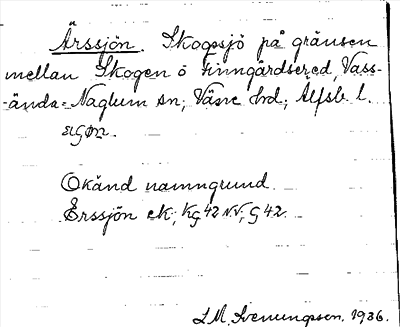 Ärssjön. Skogssjö på gränsen
mellan Skogen ö Finngärdsered, Vass-
ända-Naglum sn; Väne hd; Älfsb. l.
Okänd namngrund.
Erssjön ek; Kg 42 NV; G 42.
L.M. Svenungsson. 1936.